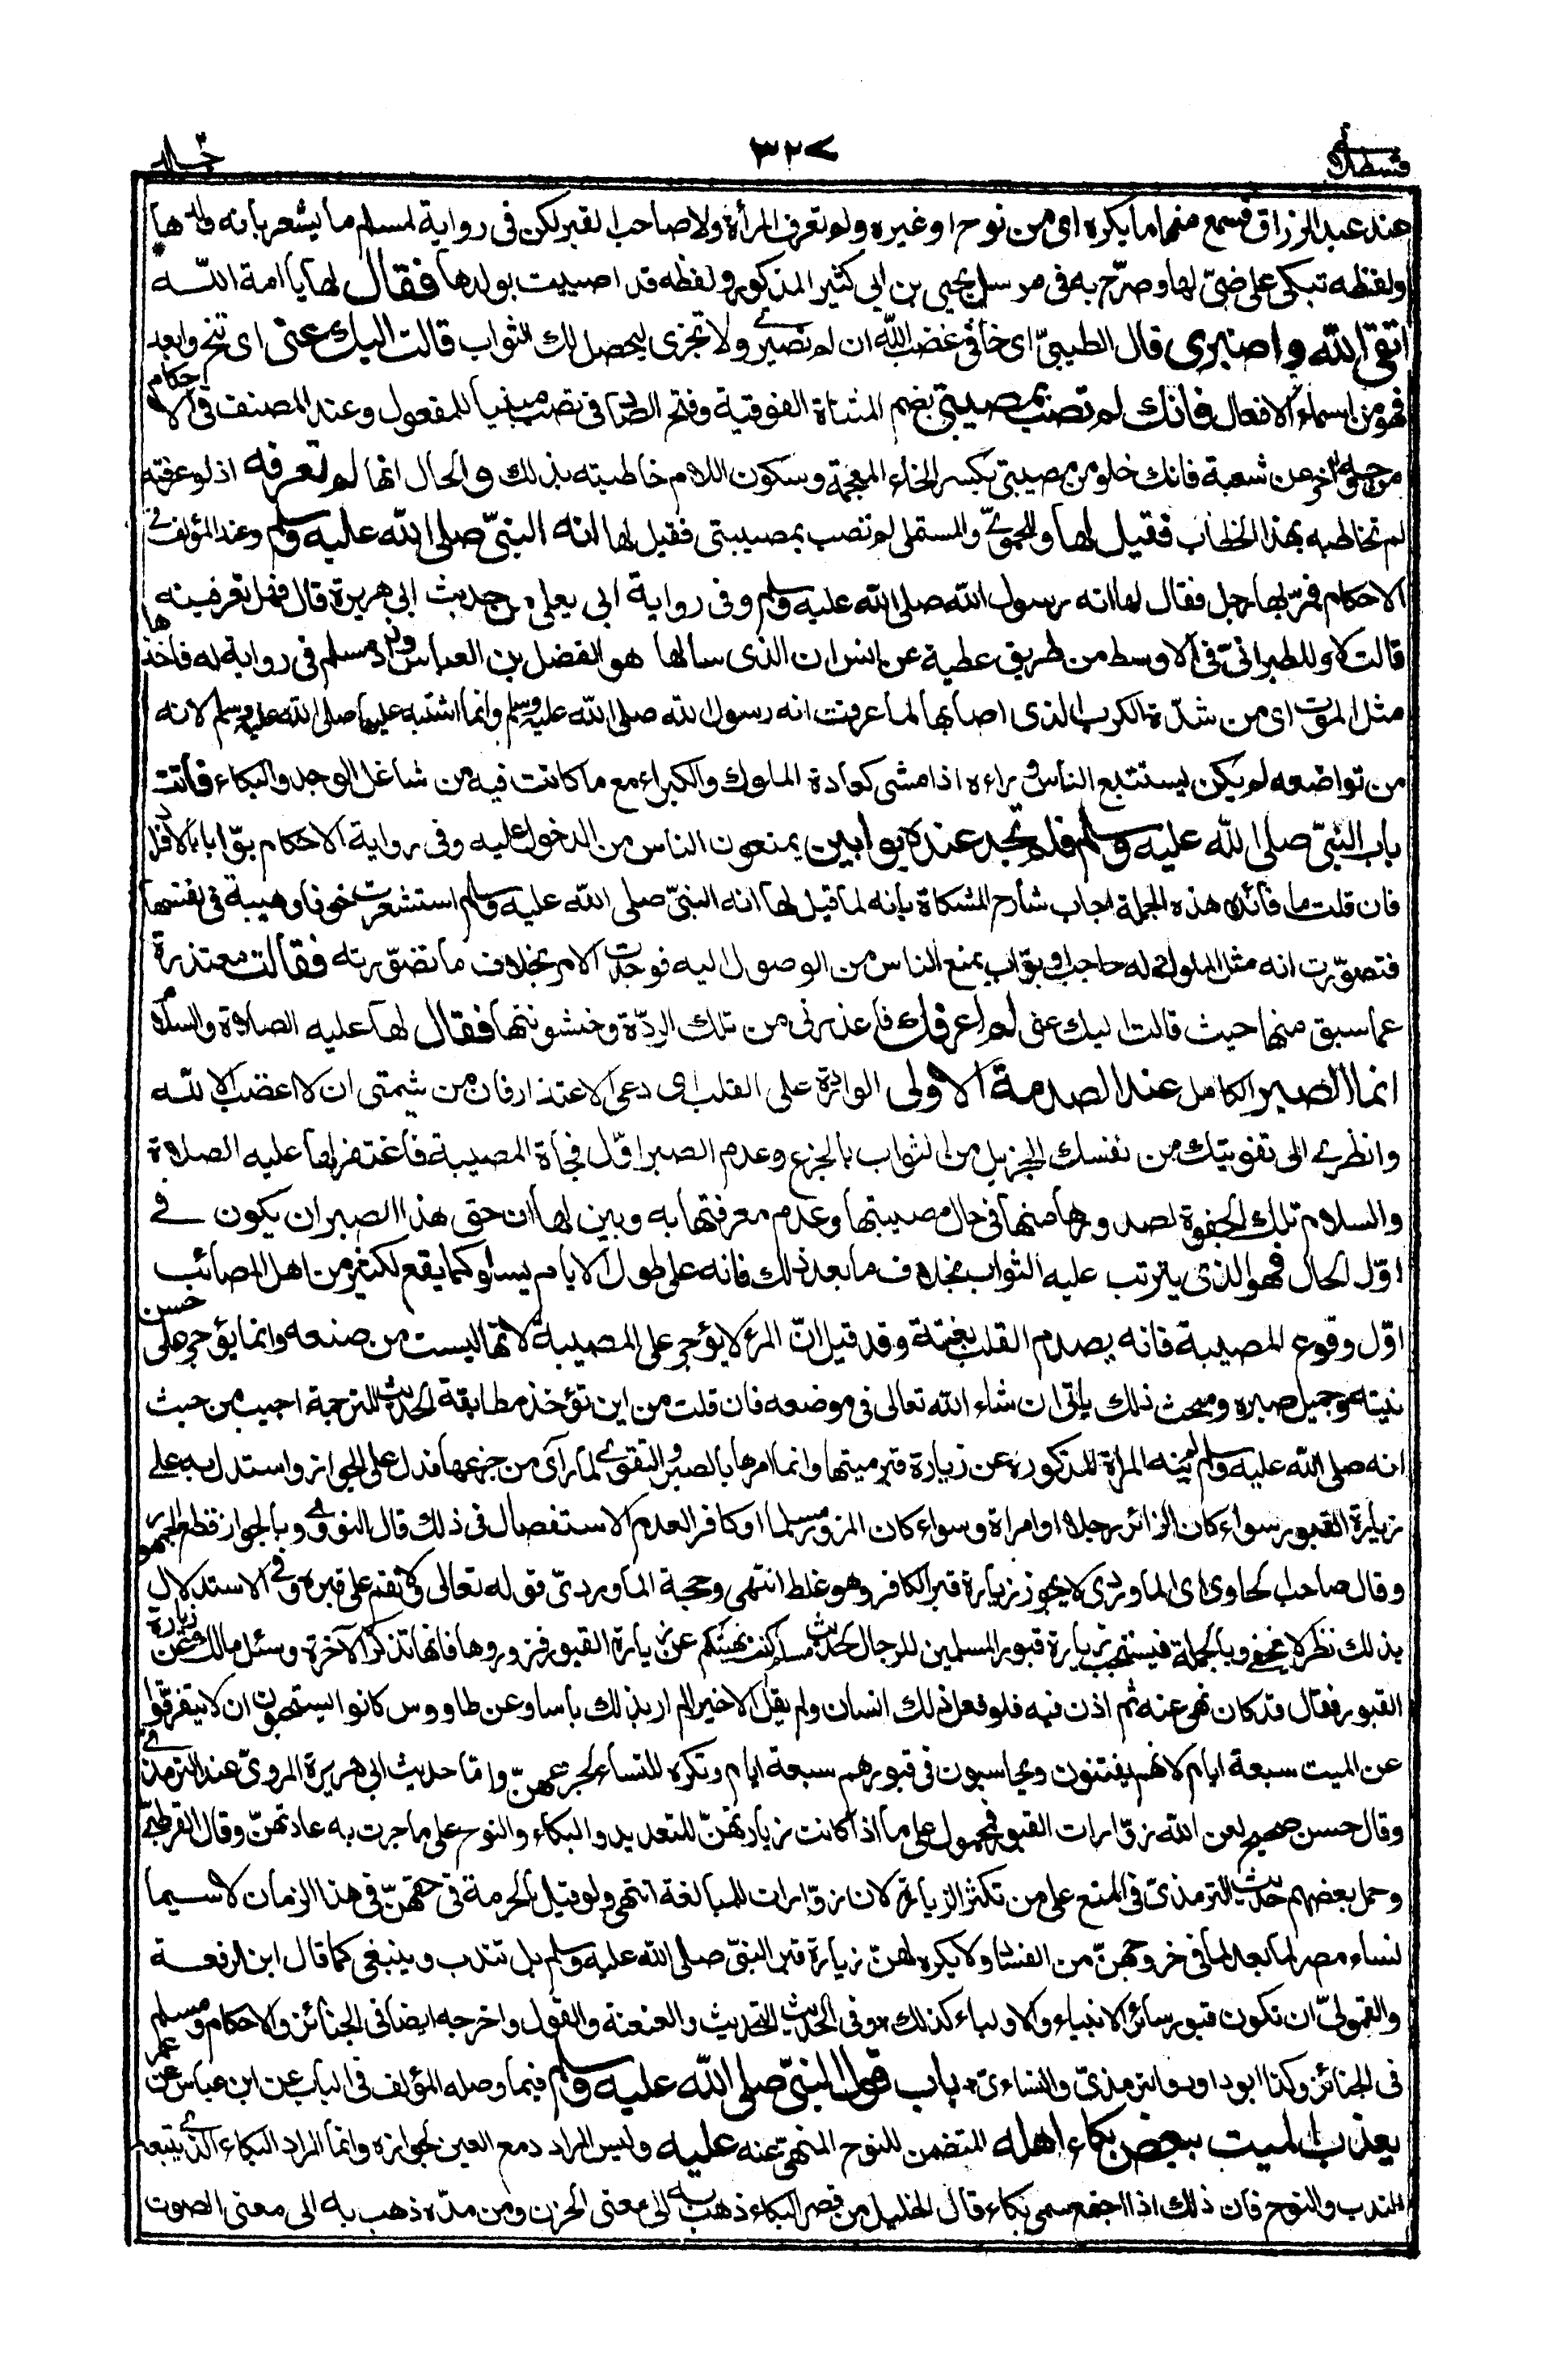 قسطلانی ٣٢٧ ثالث
عند عبد الرزاق فسمع منها ما يكره اى من نوح او غيره ولم تعرف المرأة ولا صاحب القبر لكن فى رواية لمسلم ما يشعر بانه ولدها
ولفظه تبكى على صبىّ لها وصرّح به فى مرسل يحيى بن ابى كثير المذكور ولفظه قد اصيبت بولدها فقال لها يا امة اللّه
اتقى اللّه واصبرى قال الطيبىّ اى خافى غضب اللّه ان لم تصبرى ولا تجزعى ليحصل لك الثواب قالت اليك عنى اى تنحّ وابعد
فهو من اسماء الافعال فانك لم تصب بمصيبتى بضم المثناة الفوقية وفتح الصاد فى تصب مبنيا للمفعول وعند المصنف فى الاحكام
من وجه اخر عن شعبة فانك خلو من مصيبتى بكسر الخاء المعجمة وسكون اللام خاطبته بذلك والحال انها لم تعرفه اذ لو عرفته
لم تخاطبه بهذا الخطاب فقيل لها وللحموىّ والمستملى لم تصب بمصيبتى فقيل لها انه النبىّ صلى اللّه عليه وسلم وعند المؤلف فى
الاحكام فمرّ بها رجل فقال لها انه رسول اللّه صلى اللّه عليه وسلم وفى رواية ابى يعلى من حديث ابى هريرة قال فهل تعرفينه
قالت لا وللطبرانىّ فى الاوسط من طريق عطية عن انس ان الذى سالها هو الفضل بن العباس وزاد مسلم فى رواية له فاخذها
مثل الموت اى من شدّة الكرب الذى اصابها لما عرفت انه رسول اللّه صلى اللّه عليه وسلم وانما اشتبه عليها صلى اللّه عليه وسلم لانه
من تواضعه لم يكن يستتبع الناس وراءه اذا مشى كعادة الملوك والكبراء مع ما كانت فيه من شاغل الوجد والبكاء فاتت
باب النبىّ صلى اللّه عليه وسلم فلم تجد عنده بوابين يمنعون الناس من الدخول عليه وفى رواية الاحكام بوّابا بالافراد
فان قلت ما فائدة هذه الجملة اجاب شارح المشكاة بانه لما قيل لها انه النبىّ صلى اللّه عليه وسلم استشعرت خوفا وهيبة فى نفسها
فتصوّرت انه مثل الملوك له حاجب او بوّاب يمنع الناس من الوصول اليه فوجدت الامر بخلاف ما تصوّرته فقالت معتذرة
عما سبق منها حيث قالت اليك عنى لم اعرفك فاعذرنى من تلك الردّة وخشونتها فقال لها عليه الصلاة والسلام
انما الصبر الكامل عند الصدمة الاولى الواردة على القلب اى دعى الاعتذار فان من شيمتى ان لا اغضب الا للّه
وانظرى الى تفويتك من نفسك الجزيل من الثواب بالجزع وعدم الصبر اوّل فجأة المصيبة فاغتفر لها عليه الصلاة
والسلام تلك الجفوة لصدورها منها فى حال مصيبتها وعدم معرفتها به وبين لها ان حق هذا الصبر ان يكون فى
اوّل الحال فهو الذى يترتب عليه الثواب بخلاف ما بعد ذلك فانه على طول الايام يسلو كما يقع لكثير من اهل المصائب
اوّل وقوع المصيبة فانه يصدم القلب بغتة وقد قيل انّ المرء لا يؤجر على المصيبة لانها ليست من صنعه وانما يؤجر على حسن
نيته وجميل صبره ومبحث ذلك ياتى ان شاء اللّه تعالى فى موضعه فان قلت من اين تؤخذ مطابقة الحديث للترجمة اجيب من حيث
انه صلى اللّه عليه وسلم لم ينه المرأة المذكورة عن زيارة قبر ميتها وانما امرها بالصبر والتقوى لما راى من جزعها فدل على الجواز واستدل به على
زيارة القبور سواء كان الزائر رجلا او امراة وسواء كان المزور مسلما او كافرا لعدم الاستفصال فى ذلك قال النووى وبالجواز قطع الجمهور
وقال صاحب الحاوى اى الماوردى لا يجوز زيارة قبر الكافر وهو غلط انتهى وحجة الماوردىّ قوله تعالى ولا تقم على قبره وفى الاستدلال
بذلك نظر لا يخفى وبالجملة فيستحب زيارة قبور المسلمين للرجال لحديث مسلم كنت نهيتكم عن زيارة القبور فزوروها فانها تذكر الآخرة وسئل مالك عن زيارة
القبور فقال قد كان نهى عنه ثم اذن فيه فلو فعل ذلك انسان ولم يقل الا خيرا لم ار بذلك باسا وعن طاووس كانوا يستحبون ان لا يتفرقوا
عن الميت سبعة ايام لانهم يفتنون ويحاسبون فى قبورهم سبعة ايام وتكره للنساء لجزعهنّ وامّا حديث ابى هريرة المروىّ عند الترمذى
وقال حسن صحيح لعن اللّه زوّارات القبور فمحمول على ما اذا كانت زيارتهنّ للتعديد والبكاء والنوح على ما جرت به عادتهنّ وقال القرطبىّ
وحمل بعضهم حديث الترمذىّ فى المنع على من تكثر الزيارة لان زوّارات للمبالغة انتهى ولو قيل بالحرمة فى حقهنّ فى هذا الزمان لا سيما
لنساء مصر لما بعد لما فى خروجهنّ من الفساد ولا يكره لهنّ زيارة قبر النبىّ صلى اللّه عليه وسلم بل تندب وينبغى كما قال ابن الرفعة
والقمولىّ ان تكون قبور سائر الانبياء والاولياء كذلك وفى الحديث التحديث والعنعنة والقول واخرجه ايضا فى الجنائز والاحكام ومسلم
فى الجنائز وكذا ابو داود والترمذىّ والنساءىّ باب قول النبىّ صلى اللّه عليه وسلم فيما وصله المؤلف فى الباب عن ابن عباس عن عمر
يعذب الميت ببعض بكاء اهله المتضمن للنوح المنهىّ عنه عليه وليس المراد دمع العين لجوازه وانما المراد البكاء الذى يتبعه
الندب والنوح فان ذلك اذا اجتمع سمى بكاء قال الخليل من قصر البكاء ذهب به الى معنى الحزن ومن مدّه ذهب به الى معنى الصوت